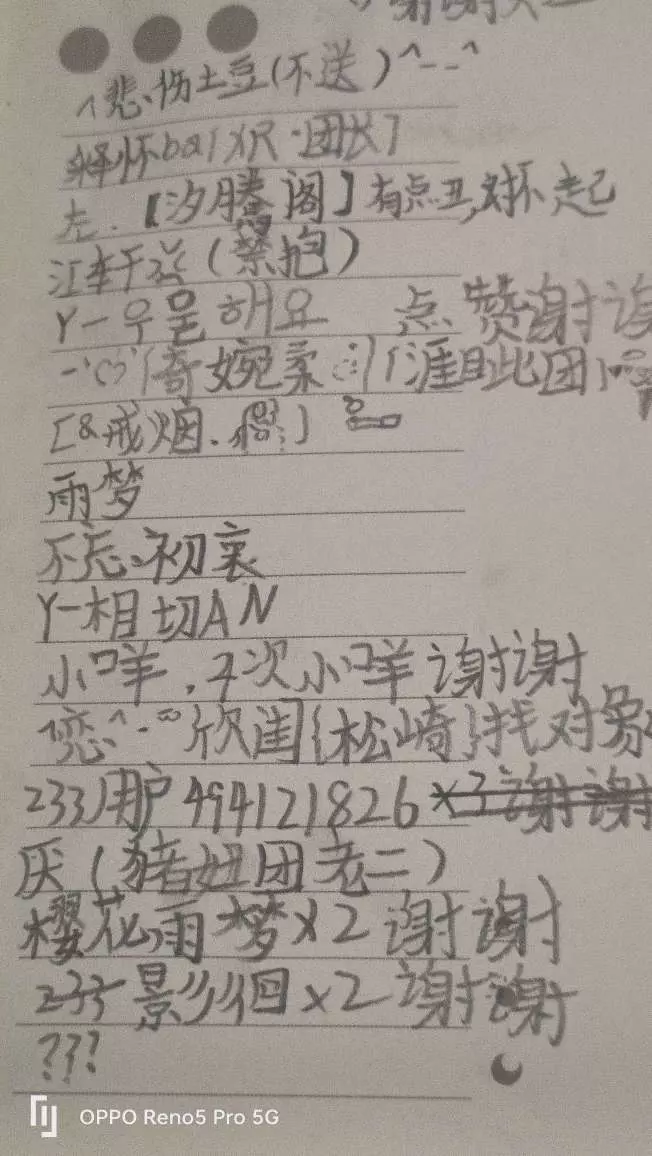 谢谢
^悲、伤土豆(不送)^--^
释怀bar XR·团长]
左.【汐腾阁】有点丑,对不起
(禁抱)
Y一우 해요 点赞谢谢
奇婉柔 团
[&戒烟.
雨梦
不忘、初衷
Y-相切AN
小咩,7次小咩谢谢
恋^ 欣闺{松崎}找对象
233用户494121826×3谢谢
厌(猪妞团老二)
樱花雨梦×2谢谢
233影徊×2谢谢
???
OPPO Reno5 Pro 5G